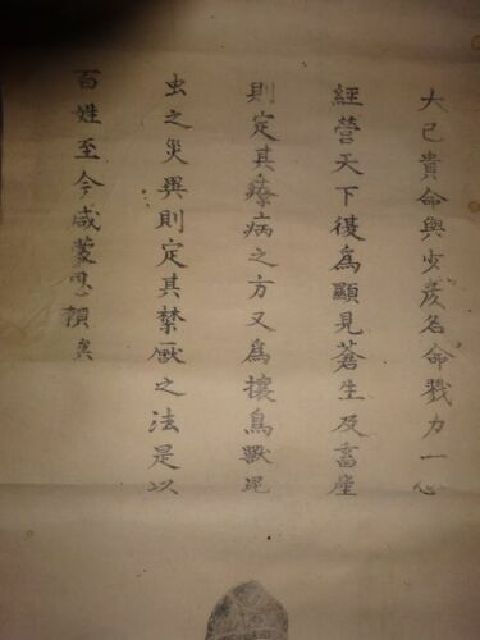 大己貴命與少彦名命戮力一心
經營天下復為顯見蒼生及畜産
則定其療病之方又為攘鳥獸昆
虫之災異則定其禁厭之法是以
百姓至今咸蒙恩頼矣